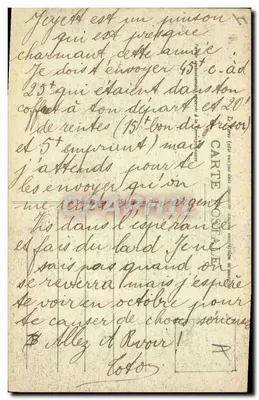 Joyett est un pinson
qui est presque
charmant cette année
Je dois t'envoyer 45t c-à-d
25t qui étaient dans ton
coffret à ton départ et 20t
de rentes (15t bon du trésor
et 5t emprunt) mais
j'attends pour te
les envoyer qu'on
me argent
Vis dans l'espérance
et fais du lard. Je ne
sais pas quand on
se reverra mais j'espère
te voir en octobre pour
te causer de choses sérieuses
Allez A Rvoir !
Toto
CARTE POSTALE